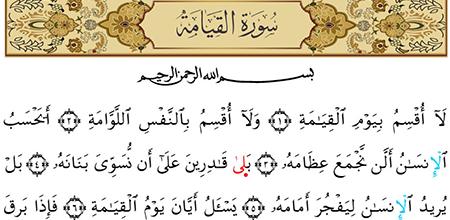 سُورَةُ القِيَامَةِ
بِسْمِ اللهِ الرَّحْمٰنِ الرَّحِيمِ
لَآ أُقْسِمُ بِيَوْمِ ٱلْقِيَـٰمَةِ ﴿١﴾ وَلَآ أُقْسِمُ بِٱلنَّفْسِ ٱللَّوَّامَةِ ﴿٢﴾ أَيَحْسَبُ
ٱلْإِنسَـٰنُ أَلَّن نَّجْمَعَ عِظَامَهُۥ ﴿٣﴾ بَلَىٰ قَـٰدِرِينَ عَلَىٰٓ أَن نُّسَوِّىَ بَنَانَهُۥ ﴿٤﴾ بَلْ
يُرِيدُ ٱلْإِنسَـٰنُ لِيَفْجُرَ أَمَامَهُۥ ﴿٥﴾ يَسْـَٔلُ أَيَّانَ يَوْمُ ٱلْقِيَـٰمَةِ ﴿٦﴾ فَإِذَا بَرِقَ